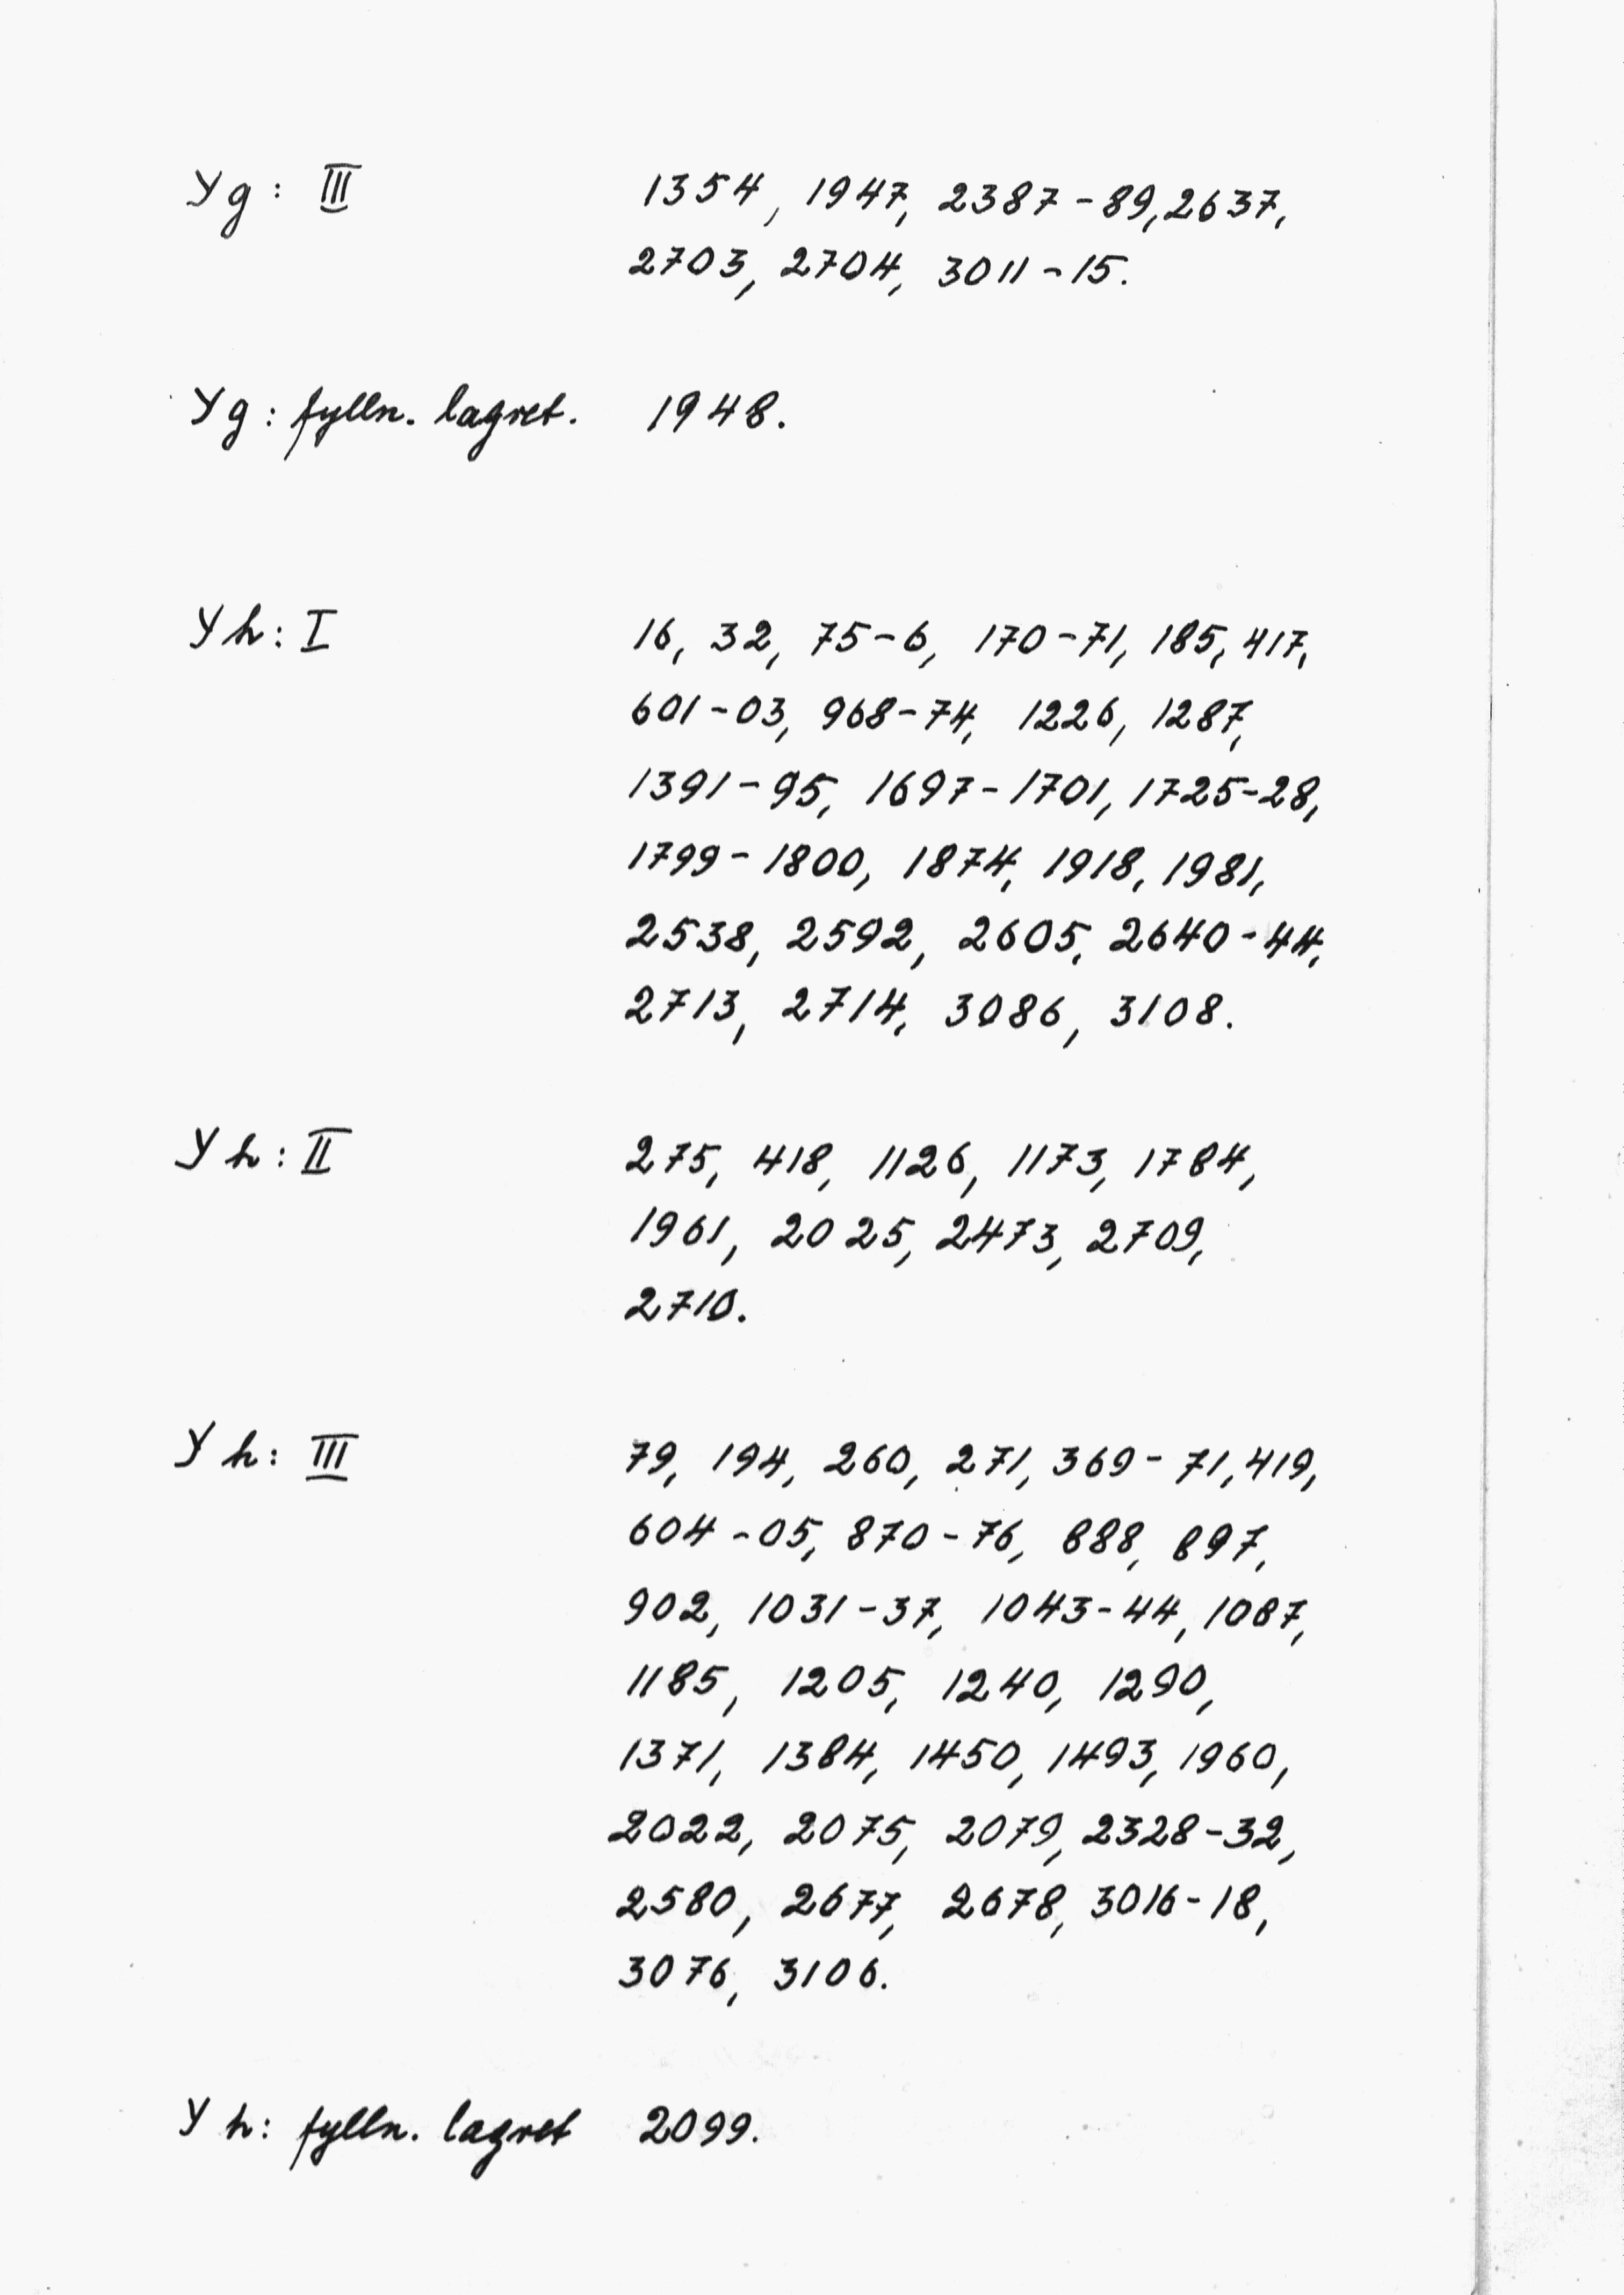 Yg: III 1354, 1947, 2387-89, 2637,
2703, 2704, 3011-15.
Yg: fylln. lagret. 1948.
Yh: I 16, 32, 75-6, 170-71, 185, 417,
601-03, 968-74, 1226, 1287,
1391-95, 1697-1701, 1725-28,
1799-1800, 1874, 1918, 1981,
2538, 2592, 2605, 2640-44,
2713, 2714, 3086, 3108.
Yh: II 275, 418, 1126, 1173, 1784,
1961, 2025, 2473, 2709,
2710.
Yh: III 79, 194, 260, 271, 369-71, 419,
604-05, 870-76, 888, 897,
902, 1031-37, 1043-44, 1087,
1185, 1205, 1240, 1290,
1371, 1384, 1450, 1493, 1960,
2022, 2075, 2079, 2328-32,
2580, 2677, 2678, 3016-18,
3076, 3106.
Yh: fylln. lagret 2099.